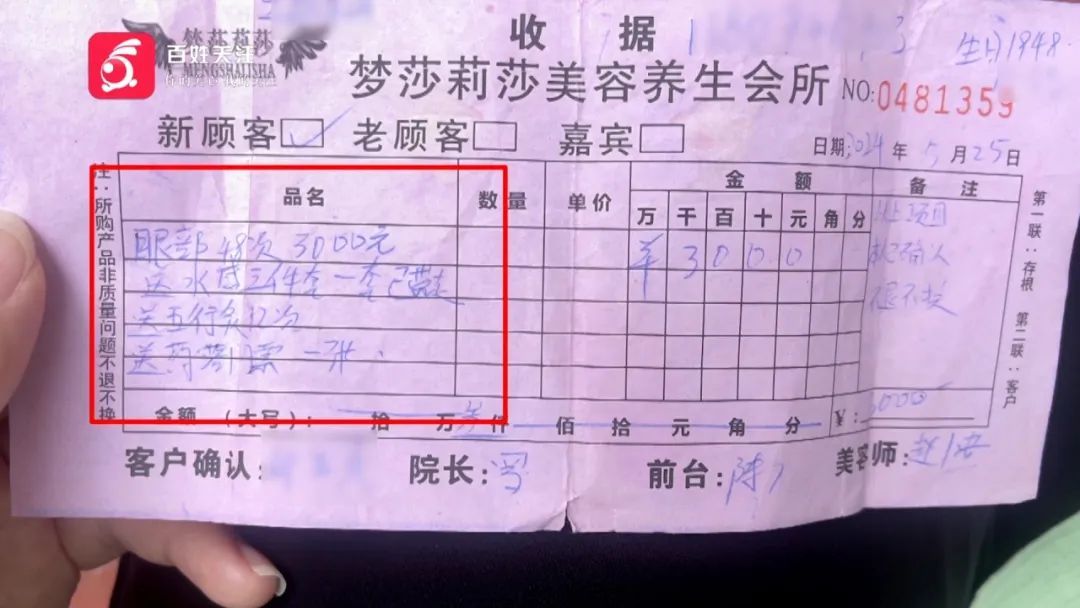 百姓关注
梦莎莉莎
MENGSHALISHA
收据
生日1948.
梦莎莉莎美容养生会所
NO:0481359
新顾客 老顾客 嘉宾
日期:2024年5月25日
注:所购产品非质量问题不退不换
品名 数量 单价 金额 备注
万 千 百 十 元 角 分
眼部48次 3000元
¥ 3 0 0 0
送水感三件套一套已带走
送五行灸12次
送 门票一张.
以上项目
确认
退不换
第一联:存根
第二联:客户
金额(大写): 拾 万 叁 仟 佰 拾 元 角 分 ¥:3000
客户确认:
院长:冯
前台:陈
美容师:赵